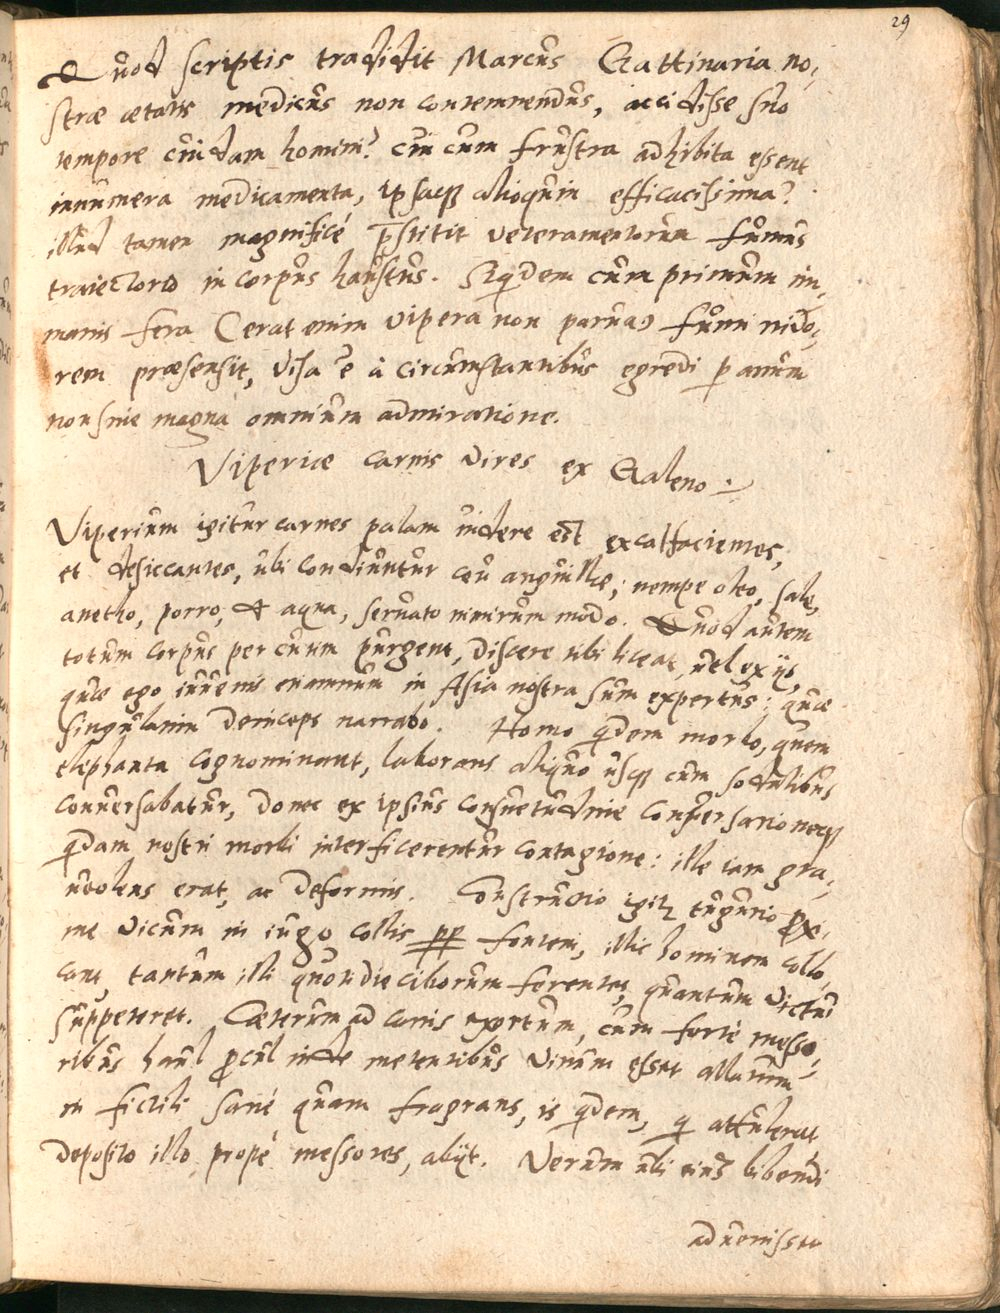 29
Quod scriptis tradidit Marcus Gattinaria no,
stræ ætatis medicus non contemnendus, accidisse suo
tempore cuidam homini? cui cum frustra adhibita essent
innumera medicamenta, ipsaq; alioquin efficacissima?
illud tamen magnificé p̄stitit veteramentorum fumus
traiectorio in corpus haustus. Siqdem cum primum im,
manis fera (erat enim vipera non parua) fumi nido,
rem præsensit, visa ē à circumstantibus egredi p anum
non sine magna omnium admiratione.
Vipericæ carnis vires ex Galeno.
Viperium igitur carnes palam uidere est excalfacientes,
et desiccantes, ubi condiuntur ceu anguillæ; nempe oleo, sale,
anetho, porro, & aqua, seruato nimirum modo. Quod autem
totum corpus per cutim purgent, discere tibi liceat, uel ex ijs,
quæ ego iuuenis etiamnum in Asia nostra sum expertus: quæ
singulatim deinceps narrabo. Homo qdem morbo, quem
elephanta cognominant, laborans aliquo usq; cum sodalibus
conuersabatur, donec ex ipsius consuetudine conuersationeq;
qdam nostri morbi interficerentur contagione: ille iam gra,
ueolens erat, ac deformis. Constructo igitr tugurio prox,
me vicum in iugo collis pp fontem, illic hominem collo,
cant, tantum illi quotidie ciborum ferentes, quantum victui
suppeteret. Cæterum ad canis exortum, cum forte messo,
ribus haud pcul inde metentibus vinum esset allatum
in fictili sané quam fragrans, is qdem, q attulerat
deposito illo propé messores, abijt. Verum ubi eius bibendi
aduenisset